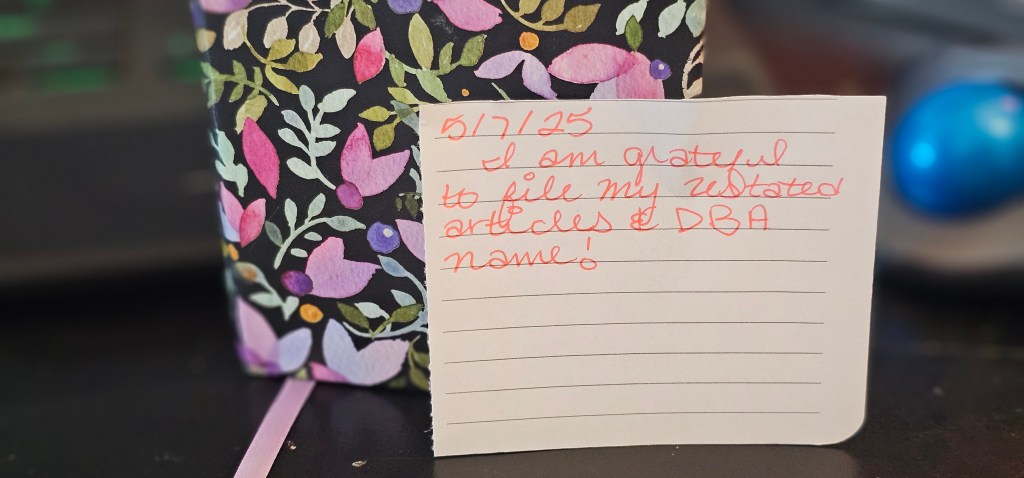 5/7/25
I am grateful
to file my restated
articles & DBA
name!